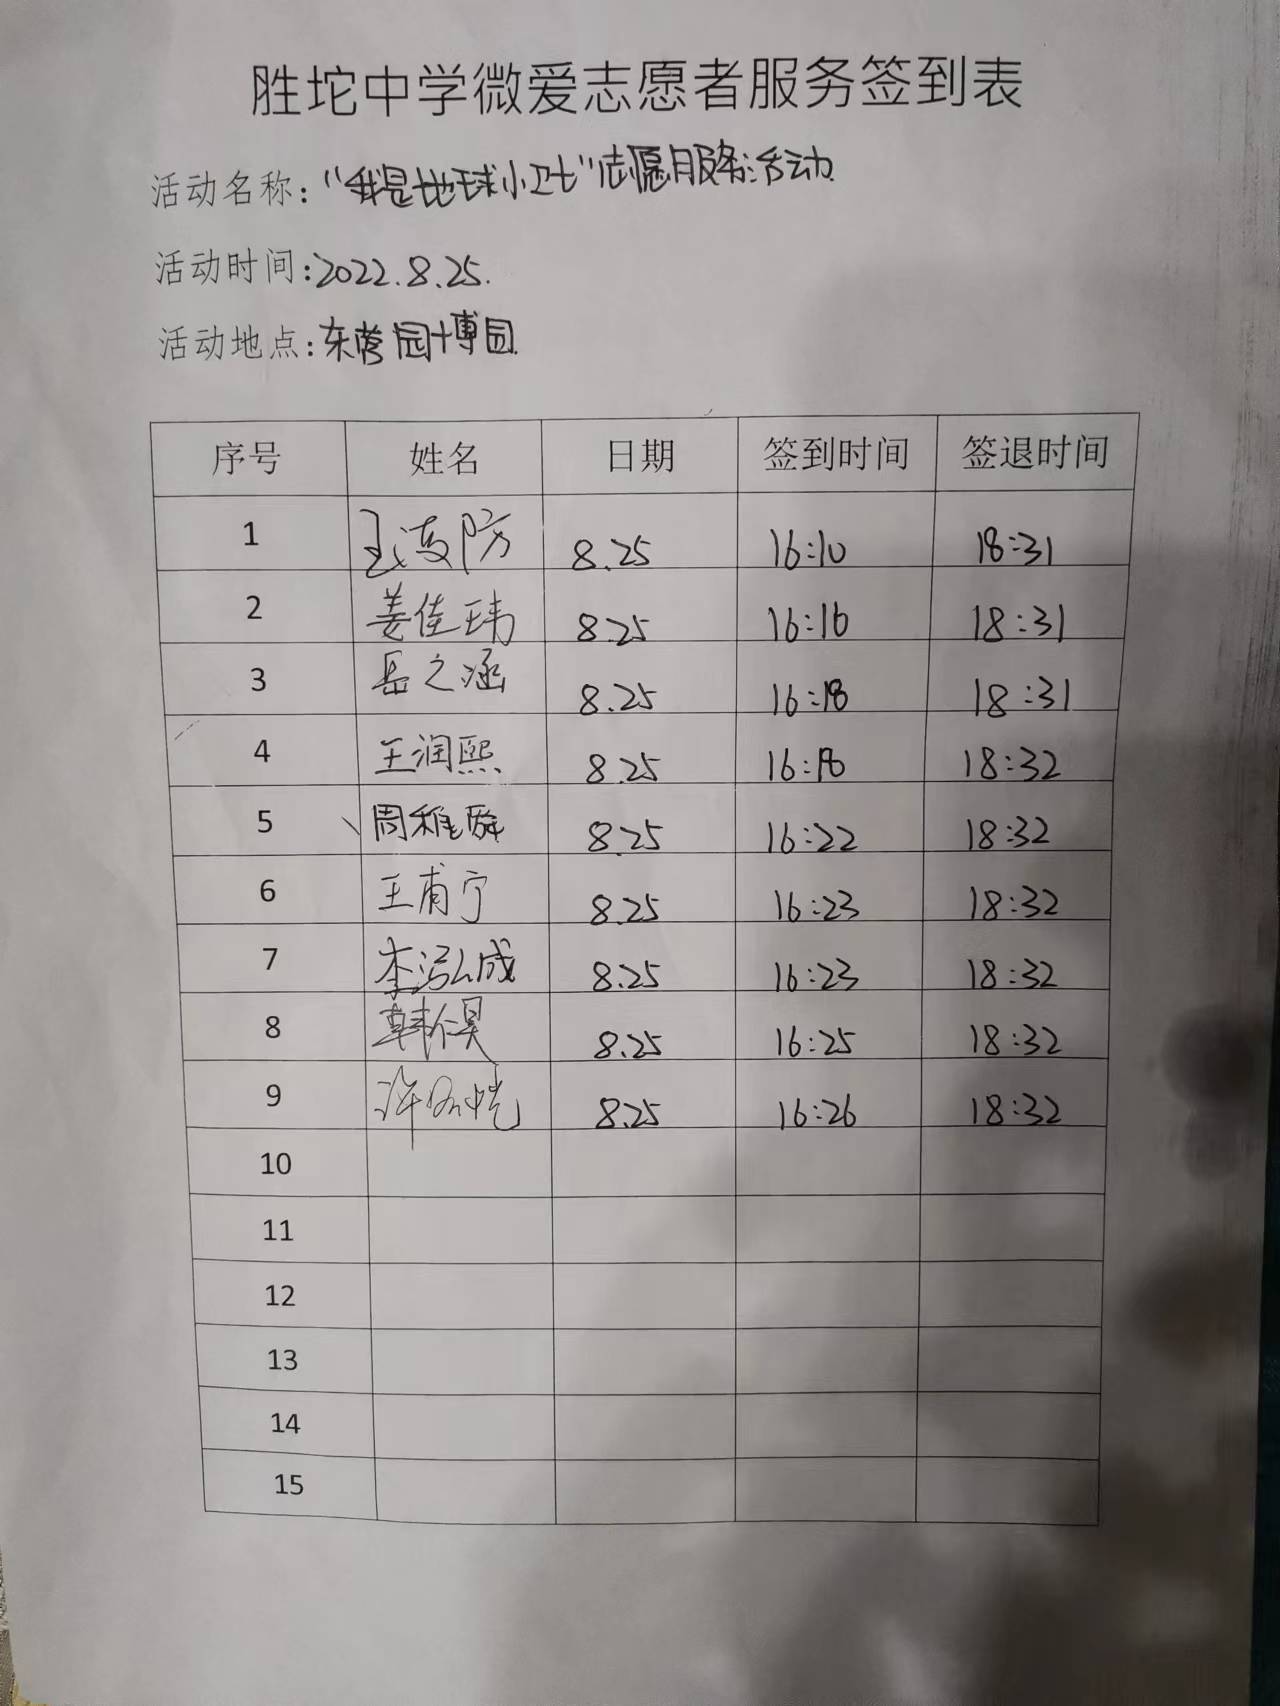 胜坨中学微爱志愿者服务签到表
活动名称："我是地球小卫士"志愿服务活动
活动时间:2022.8.25.
活动地点:东营园博园
序号 姓名 日期 签到时间 签退时间
1 8.25 16:10 18:31
2 姜佳玮 8.25 16:16 18:31
3 岳之涵 8.25 16:18 18:31
4 王润熙 8.25 16:18 18:32
5 周稚舜 8.25 16:22 18:32
6 王甫宁 8.25 16:23 18:32
7 李泓成 8.25 16:23 18:32
8 韩昊 8.25 16:25 18:32
9 8.25 16:26 18:32
10
11
12
13
14
15